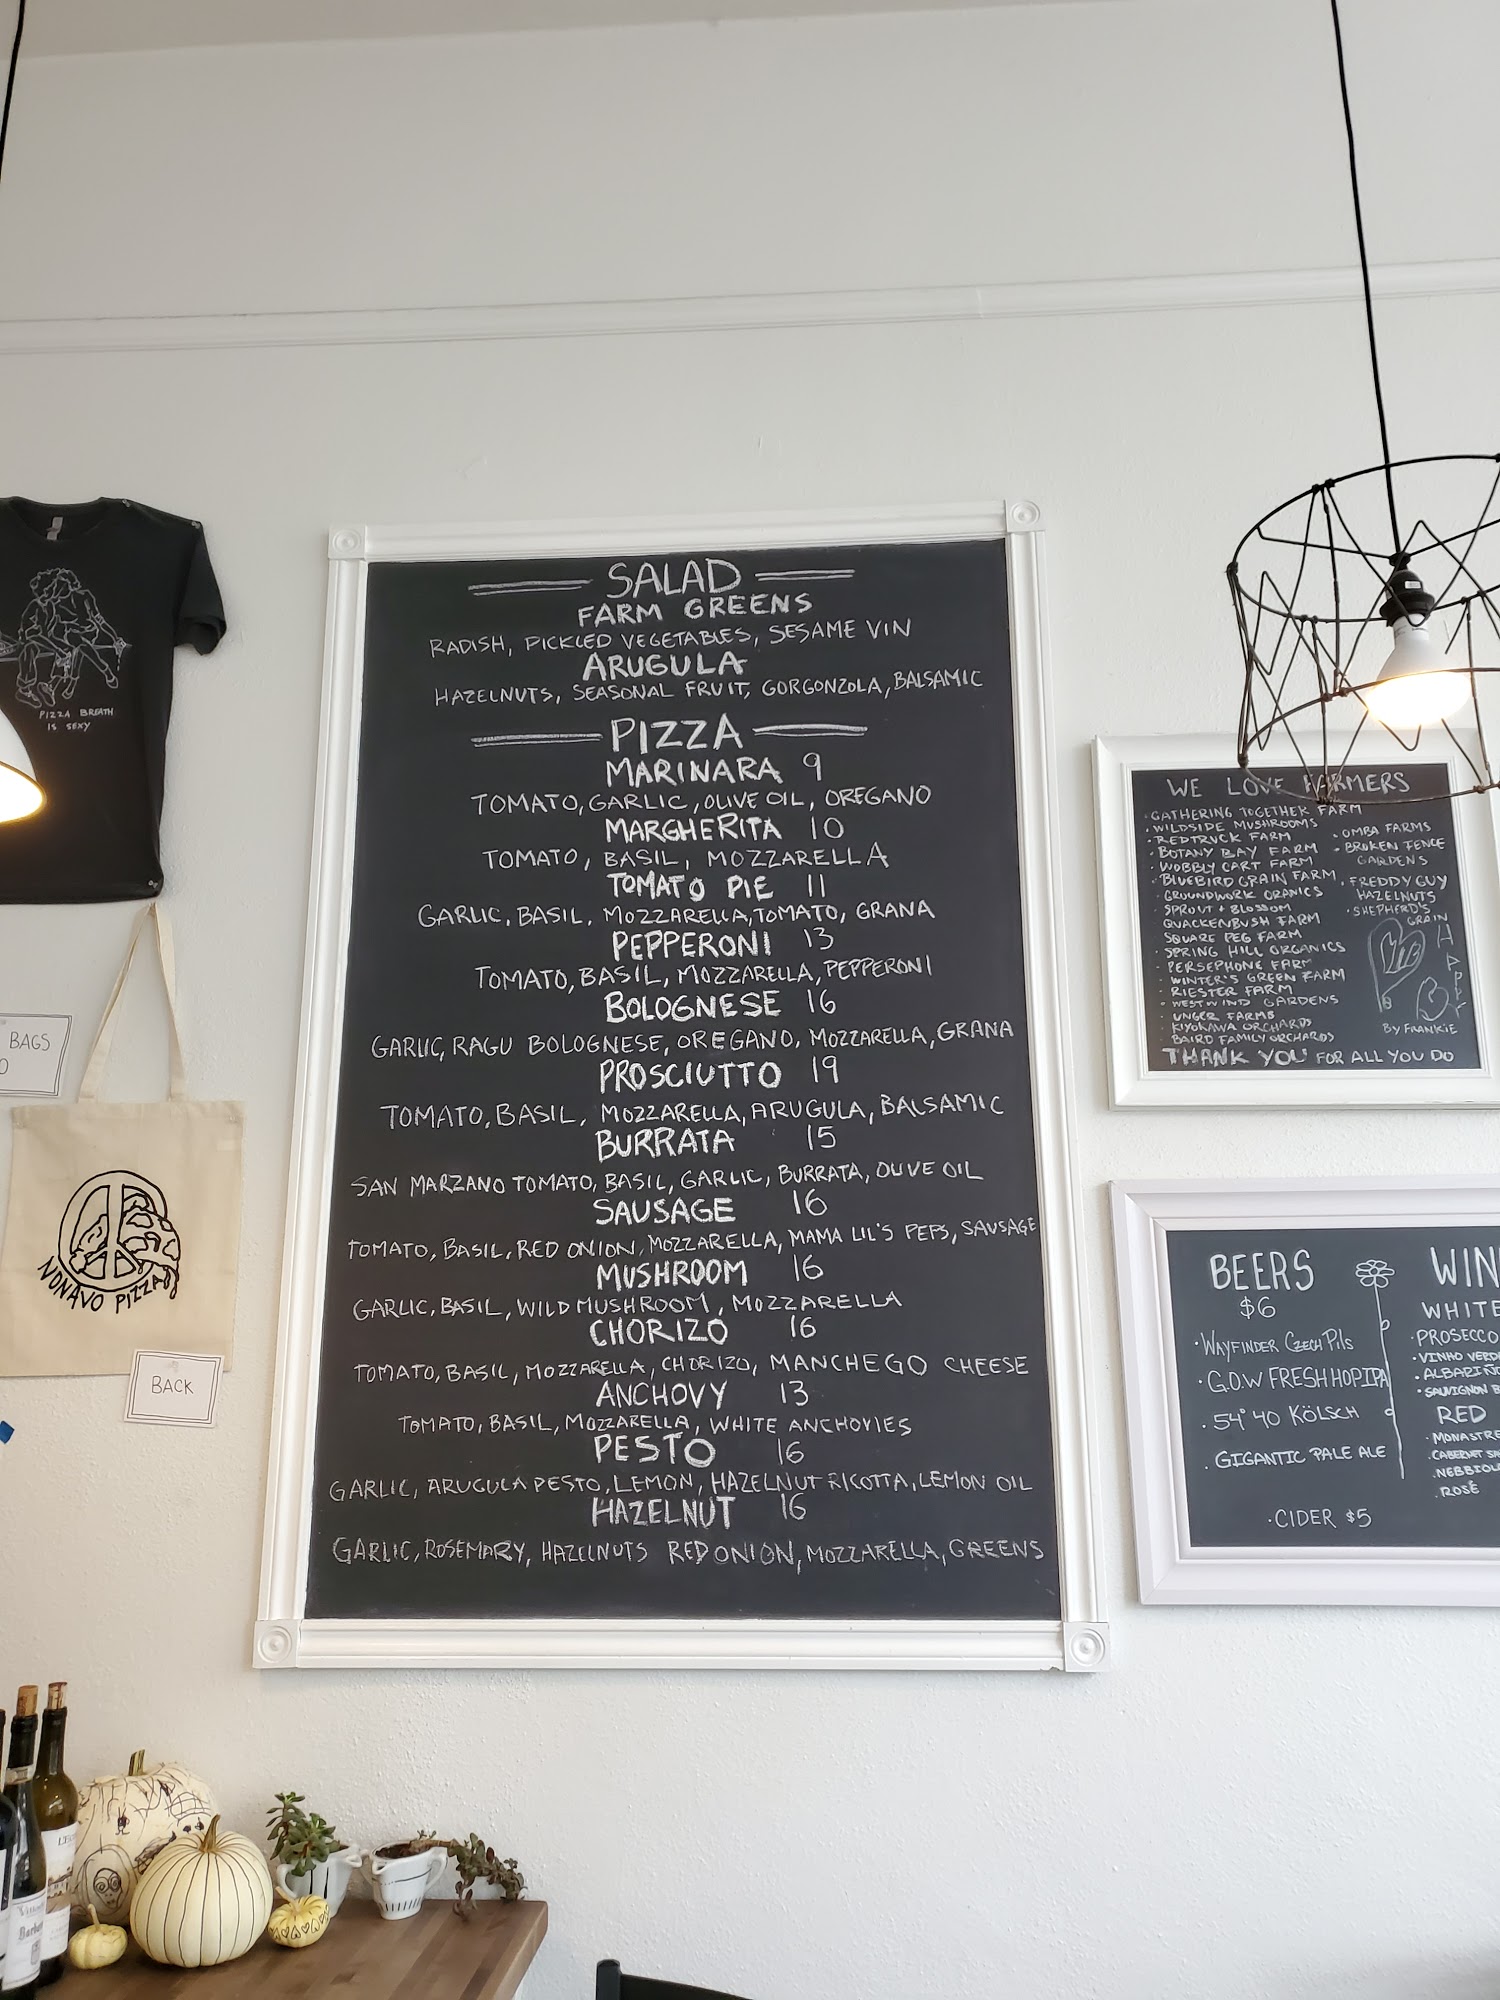 PIZZA BREATH
IS SEXY
BAGS
BACK
NONAVO PIZZA
SALAD
FARM GREENS
RADISH, PICKLED VEGETABLES, SESAME VIN
ARUGULA
HAZELNUTS, SEASONAL FRUIT, GORGONZOLA, BALSAMIC
PIZZA
MARINARA 9
TOMATO, GARLIC, OLIVE OIL, OREGANO
MARGHERITA 10
TOMATO, BASIL, MOZZARELLA
TOMATO PIE 11
GARLIC, BASIL, MOZZARELLA, TOMATO, GRANA
PEPPERONI 13
TOMATO, BASIL, MOZZARELLA, PEPPERONI
BOLOGNESE 16
GARLIC, RAGU BOLOGNESE, OREGANO, MOZZARELLA, GRANA
PROSCIUTTO 19
TOMATO, BASIL, MOZZARELLA, ARUGULA, BALSAMIC
BURRATA 15
SAN MARZANO TOMATO, BASIL, GARLIC, BURRATA, OLIVE OIL
SAUSAGE 16
TOMATO, BASIL, RED ONION, MOZZARELLA, MAMA LIL'S PEPS, SAUSAGE
MUSHROOM 16
GARLIC, BASIL, WILD MUSHROOM, MOZZARELLA
CHORIZO 16
TOMATO, BASIL, MOZZARELLA, CHORIZO, MANCHEGO CHEESE
ANCHOVY 13
TOMATO, BASIL, MOZZARELLA, WHITE ANCHOVIES
PESTO 16
GARLIC, ARUGULA PESTO, LEMON, HAZELNUT RICOTTA, LEMON OIL
HAZELNUT 16
GARLIC, ROSEMARY, HAZELNUTS RED ONION, MOZZARELLA, GREENS
WE LOVE FARMERS
· GATHERING TOGETHER FARM
· WILDSIDE MUSHROOMS
· REDTRUCK FARM
· BOTANY BAY FARM
· WOBBLY CART FARM
· BLUEBIRD GRAIN FARM
· GROUNDWORK ORANICS
· SPROUT + BLOSSOM
QUACKENBUSH FARM
SQUARE PEG FARM
· SPRING HILL ORGANICS
· PERSEPHONE FARM
· WINTER'S GREEN FARM
· RIESTER FARM
· WESTWIND GARDENS
· UNGER FARMS
· KIYOKAWA ORCHARDS
· BAIRD FAMILY ORCHARDS
· OMBA FARMS
· BROKEN FENCE
GARDENS
· FREDDY GUY
HAZELNUTS
· SHEPHERD'S
GRAIN
HAPPY
BY FRANKIE
THANK YOU FOR ALL YOU DO
BEERS
$6
· WAYFINDER CZECH PILS
· G.O.W FRESH HOP IPA
· 54° 40 KÖLSCH
· GIGANTIC PALE ALE
· CIDER $5
WIN
WHITE
· PROSECCO
· VINHO VERD
· ALBARIÑO
· SAUVIGNON B
RED
· MONASTRE
· CABERNET SA
· NEBBIOL
· ROSÉ